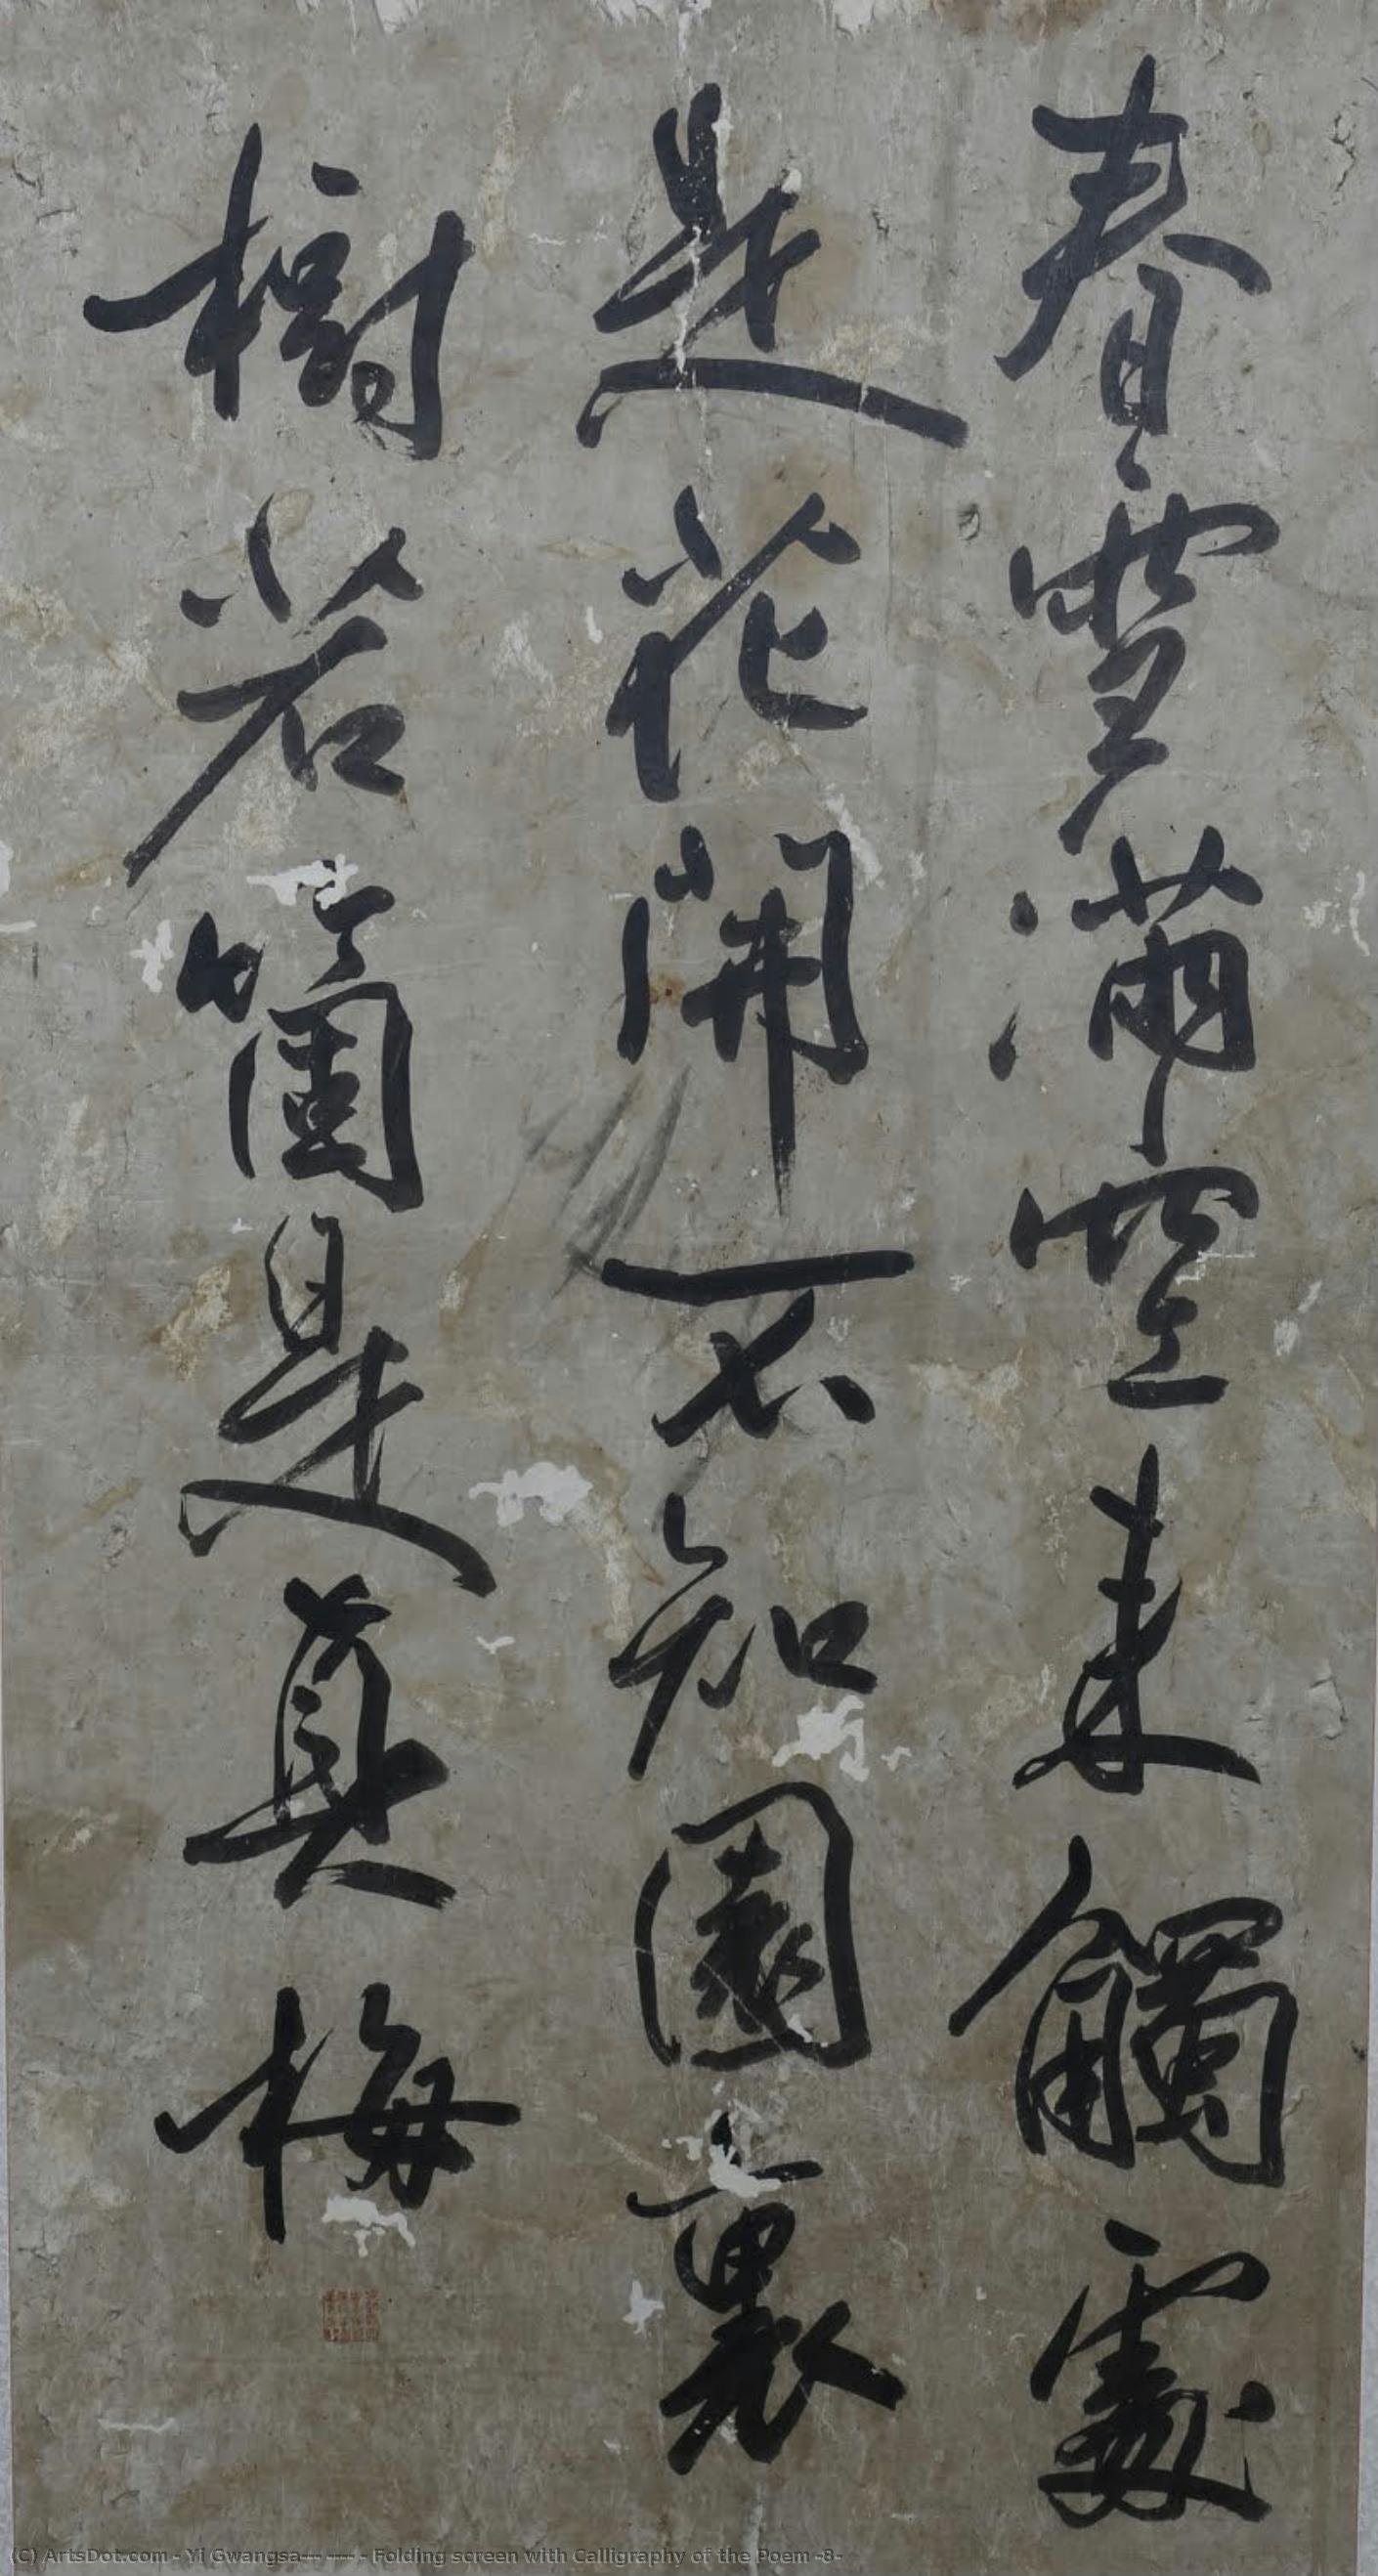 春雪滿空来觸處
是花開不知園裏
樹若箇是真梅
(C) ArtsDot.com - Yi Gwangsa-- --- - Folding screen with Calligraphy of the Poem -8-